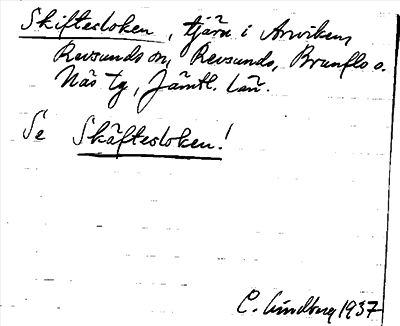 Skiftesloken, tjärn i Anviken,
Revsunds sn, Revsunds, Brunflo o.
Näs tg, Jämtl. län.
Se Skäftesloken!
C. Lindberg 1937